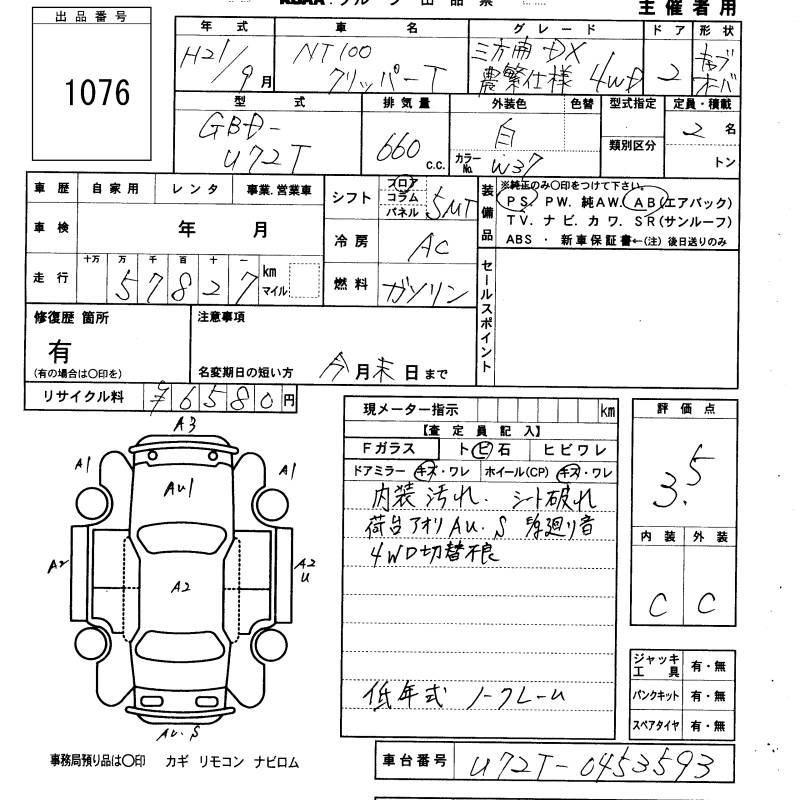 出品番号
1076
主催者用
年式 車名 グレード ドア 形状
H21/9月 NT100 クリッパーT 三方開 DX 農繁仕様 4WD 2 キャブオーバ
型式 排気量 外装色 色替 型式指定 定員・積載
GBD-U72T 660 c.c. 白 カラーNo. W37 類別区分 2名 トン
車歴 自家用 レンタ 事業.営業車
車検 年 月
走行 十万 万 千 百 十 一 km マイル
5 7 8 2 7
シフト フロア コラム パネル 5MT
冷房 AC
燃料 ガソリン
装備品 ※純正のみ○印をつけて下さい。
PS. PW. 純AW. AB(エアバック)
TV. ナビ. カワ. SR(サンルーフ)
ABS ・ 新車保証書←(注) 後日送りのみ
セールスポイント
修復歴 箇所
有
(有の場合は○印を)
注意事項
名変期日の短い方 今月末日まで
リサイクル料 ¥6580円
現メーター指示 km
【査定員記入】
Fガラス ト ビ 石 ヒビワレ
ドアミラー キズ・ワレ ホイール(CP) キズ・ワレ
内装汚れ. シート破れ
荷台アオリ AU.S 足廻り音
4WD切替不良
低年式 ノークレーム
評価点
3.5
内装 外装
C C
ジャッキ工具 有・無
パンクキット 有・無
スペアタイヤ 有・無
A3
A1
AU1
A1
A2
A2
A2
U
AU.S
事務局預り品は○印 カギ リモコン ナビロム
車台番号 U72T-0453593